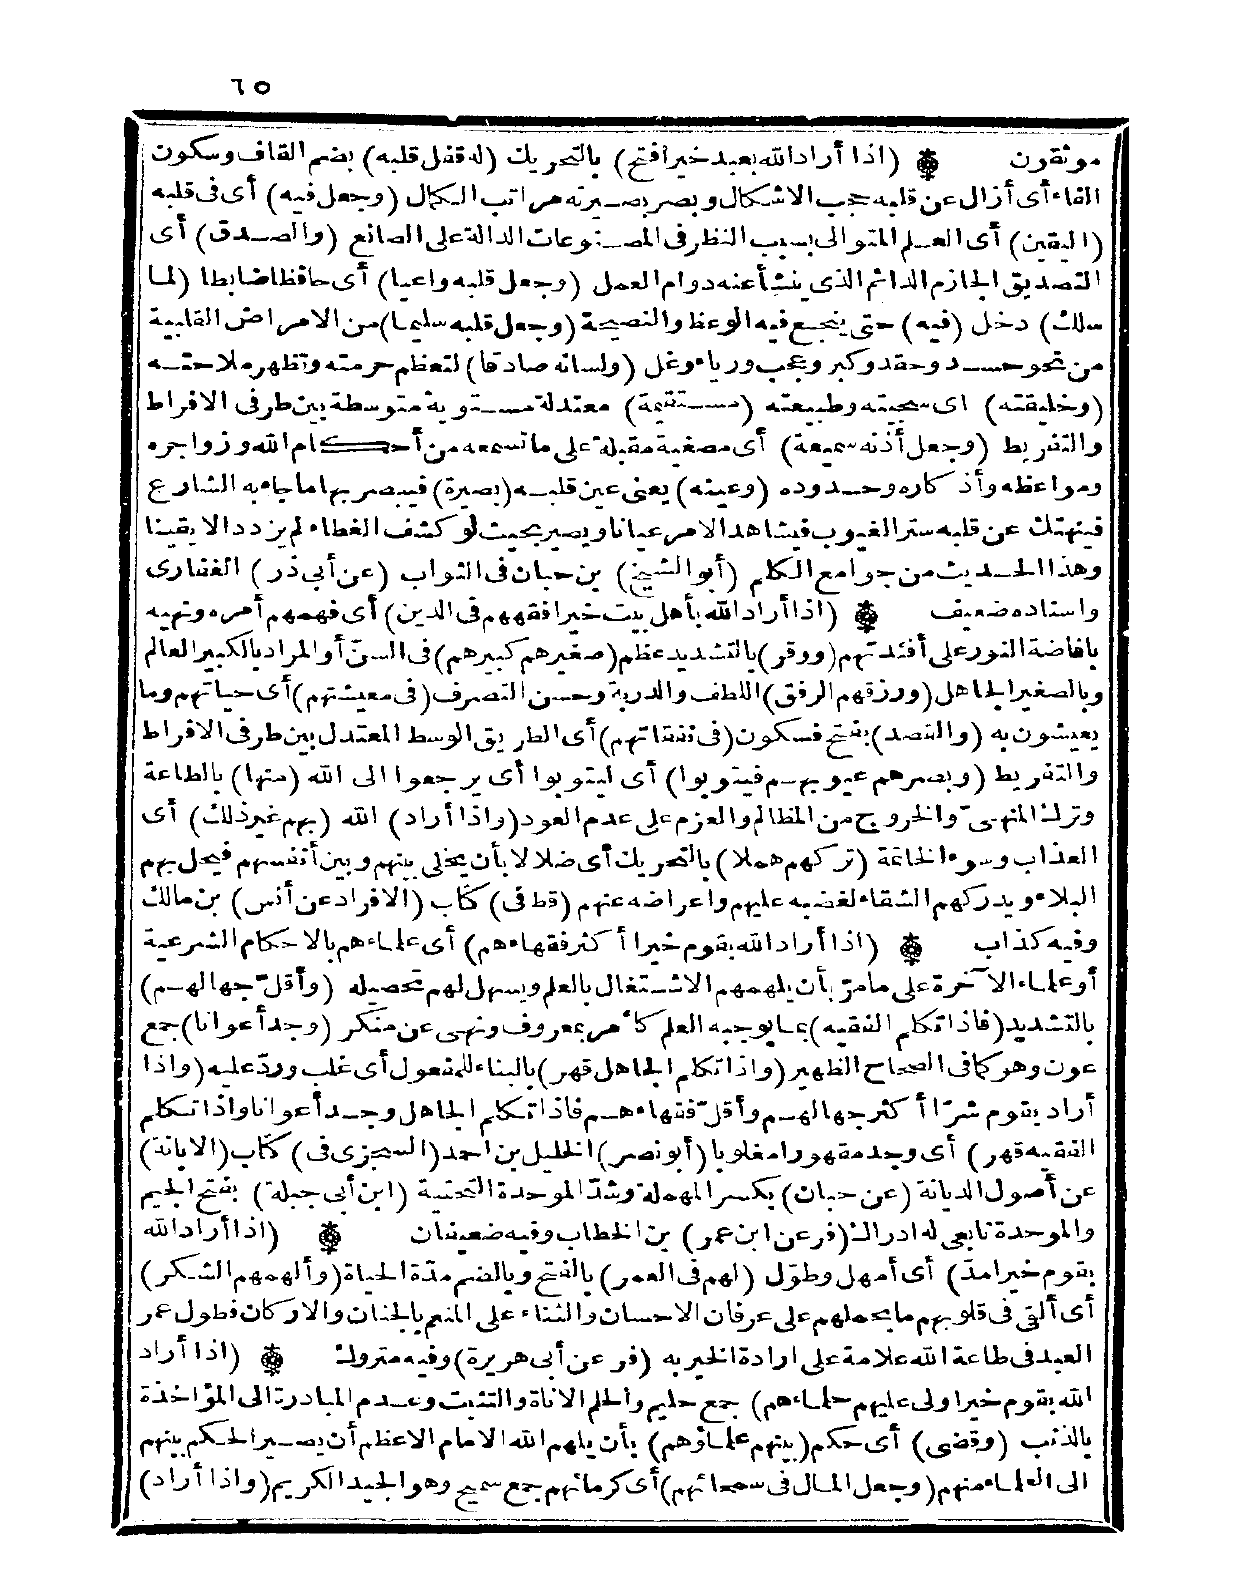 ٦٥
موثقون (اذا أراد الله بعبد خيرا فتح) بالتحريك (له قفل قلبه) بضم القاف وسكون
الفاء أى أزال عن قلبه حجب الاشكال وبصر بصيرته مراتب الكمال (وجعل فيه) أى فى قلبه
(اليقين) أى العلم المتوالى بسبب النظر فى المصنوعات الدالة على الصانع (والصدق) أى
التصديق الجازم الدائم الذى ينشأ عنه دوام العمل (وجعل قلبه واعيا) أى حافظا ضابطا (لما
سلك) دخل (فيه) حتى ينجع فيه الوعظ والنصيحة (وجعل قلبه سليما) من الامراض القلبية
من نحو حسد وحقد وكبر وعجب ورياء وغل (ولسانه صادقا) لتعظم حرمته وتظهر ملاحته
(وخليقته) اى سجيته وطبيعته (مستقيمة) معتدلة مستوية متوسطة بين طرفى الافراط
والتفريط (وجعل أذنه سميعة) أى مصغية مقبلة على ما تسمعه من أحكام الله وزواجره
ومواعظه وأذكاره وحدوده (وعينه) يعنى عين قلبه (بصيرة) فيبصر بها ما جاء به الشارع
فينهتك عن قلبه ستر الغيوب فيشاهد الامر عيانا ويصير بحيث لو كشف الغطاء لم يزدد الا يقينا
وهذا الحديث من جوامع الكلم (أبو الشيخ) بن حبان فى الثواب (عن أبى ذر) الغفارى
واسناده ضعيف (اذا أراد الله بأهل بيت خيرا فقههم فى الدين) أى فهمهم أمره ونهيه
بافاضة النور على أفئدتهم (ووقر) بالتشديد عظم (صغيرهم كبيرهم) فى السنّ أو المراد بالكبير العالم
وبالصغير الجاهل (ورزقهم الرفق) اللطف والدربة وحسن التصرف (فى معيشتهم) أى حياتهم وما
يعيشون به (والقصد) بفتح فسكون (فى نفقاتهم) أى الطريق الوسط المعتدل بين طرفى الافراط
والتفريط (وبصرهم عيوبهم فيتوبوا) أى ليتوبوا أى يرجعوا الى الله (منها) بالطاعة
وترك المنهىّ والخروج من المظالم والعزم على عدم العود (واذا أراد) الله (بهم غير ذلك) أى
العذاب وسوء الخاتمة (تركهم هملا) بالتحريك أى ضلالا بأن يخلى بينهم وبين أنفسهم فيحل بهم
البلاء ويدركهم الشقاء لغضبه عليهم واعراضه عنهم (قط فى) كتاب (الافراد عن أنس) بن مالك
وفيه كذاب (اذا أراد الله بقوم خيرا أكثر فقهاءهم) أى علماءهم بالاحكام الشرعية
أو علماء الآخرة على ما مرّ بأن يلهمهم الاشتغال بالعلم ويسهل لهم تحصيله (وأقلّ جهالهم)
بالتشديد (فاذا تكلم الفقيه) بما يوجبه العلم كأمر بمعروف ونهى عن منكر (وجد أعوانا) جمع
عون وهو كما فى الصحاح الظهير (واذا تكلم الجاهل قهر) بالبناء للمفعول أى غلب وردّ عليه (واذا
أراد بقوم شرّا أكثر جهالهم وأقلّ فقهاءهم فاذا تكلم الجاهل وجد أعوانا واذا تكلم
الفقيه قهر) أى وجد مقهورا مغلوبا (أبو نصر) الخليل بن احمد (السجزى فى) كتاب (الابانة)
عن أصول الديانة (عن حبان) بكسر المهملة وشدّ الموحدة التحتية (ابن أبى جبلة) بفتح الجيم
والموحدة تابعى له ادراك (فر عن ابن عمر) بن الخطاب وفيه ضعيفان (اذا أراد الله
بقوم خيرا مدّ) أى أمهل وطوّل (لهم فى العمر) بالفتح وبالضم مدّة الحياة (وألهمهم الشكر)
أى ألقى فى قلوبهم ما يحملهم على عرفان الاحسان والثناء على المنعم بالجنان والاركان فطول عمر
العبد فى طاعة الله علامة على ارادة الخير به (فر عن أبى هريرة) وفيه متروك (اذا أراد
الله بقوم خيرا ولى عليهم حلماءهم) جمع حليم والحلم الاناة والتثبت وعدم المبادرة الى المؤاخذة
بالذنب (وقضى) أى حكم (بينهم علماؤهم) بأن يلهم الله الامام الاعظم أن يصير الحكم بينهم
الى العلماء منهم (وجعل المال فى سمحائهم) أى كرمائهم جمع سميح وهو الجيد الكريم (واذا أراد)